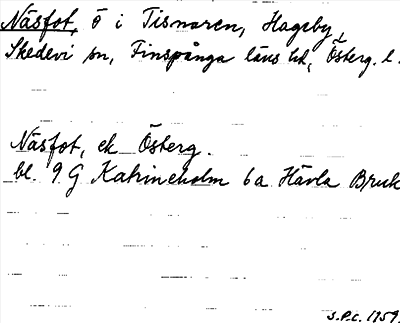 Näsfot, ö i Tisnaren, Hagaby,
Skedevi sn, Finspånga läns hd, Österg. l.
Näsfot, ek Österg.
bl. 9 G Katrineholm 6a Hävla Bruk
S.P.C. 1959.